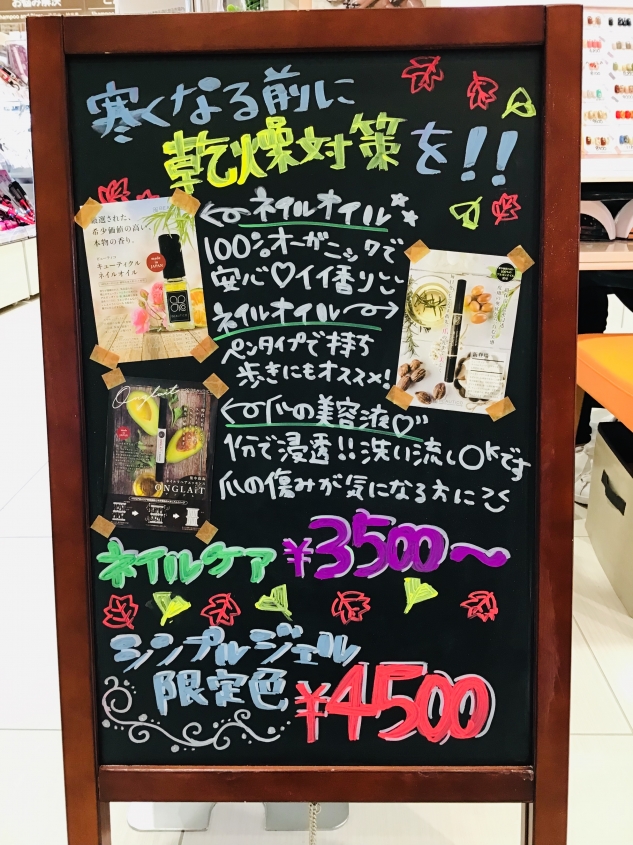 寒くなる前に
乾燥対策を!!
ネイルオイル
100%オーガニックで
安心♡イイ香り
ネイルオイル
ペンタイプで持ち
歩きにもオススメ!
爪の美容液♡
1分で浸透!!洗い流しOKです
爪の傷みが気になる方に
厳選された、
希少価値の高い、
本物の香り。
キューティクル
ネイルオイル
ONGLAiT
ネイルケア ¥3500～
シンプルジェル
限定色 ¥4500